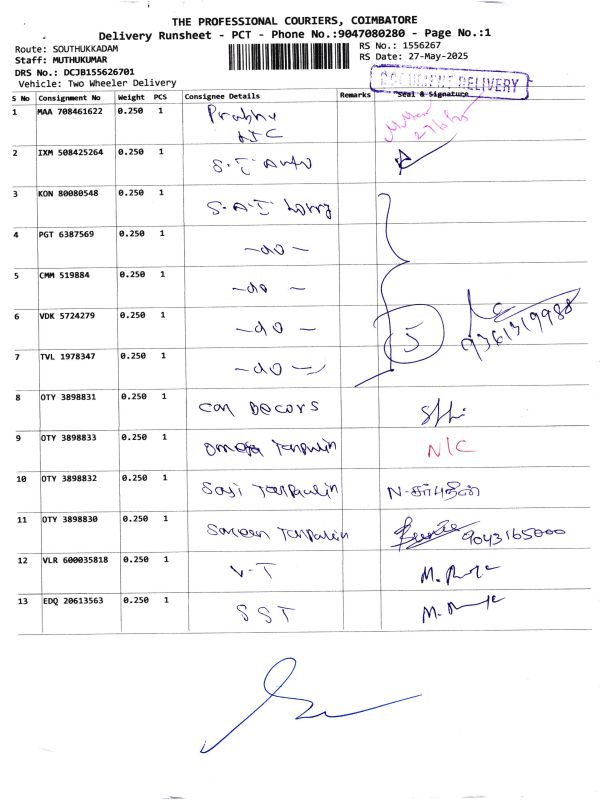 THE PROFESSIONAL COURIERS, COIMBATORE
Delivery Runsheet - PCT - Phone No.:9047080280 - Page No.:1
Route: SOUTHUKKADAM
RS No.: 1556267
Staff: MUTHUKUMAR
RS Date: 27-May-2025
DRS No.: DCJB155626701
Vehicle: Two Wheeler Delivery
DOCUMENT DELIVERY
S No Consignment No Weight PCS Consignee Details Remarks Seal & Signature
1 MAA 708461622 0.250 1 Prabhu
2 IXM 508425264 0.250 1 S.I Auto
3 KON 80080548 0.250 1 S.A.I Lorry
4 PGT 6387569 0.250 1 -do-
5 CMM 519884 0.250 1 -do-
6 VDK 5724279 0.250 1 -do- 5 9361319988
7 TVL 1978347 0.250 1 -do-
8 OTY 3898831 0.250 1 Can Decors
9 OTY 3898833 0.250 1 Omega Tarpaulin N/C
10 OTY 3898832 0.250 1 Tarpaulin
11 OTY 3898830 0.250 1 Tarpaulin 9043165000
12 VLR 600035818 0.250 1 V-T
13 EDQ 20613563 0.250 1 SST